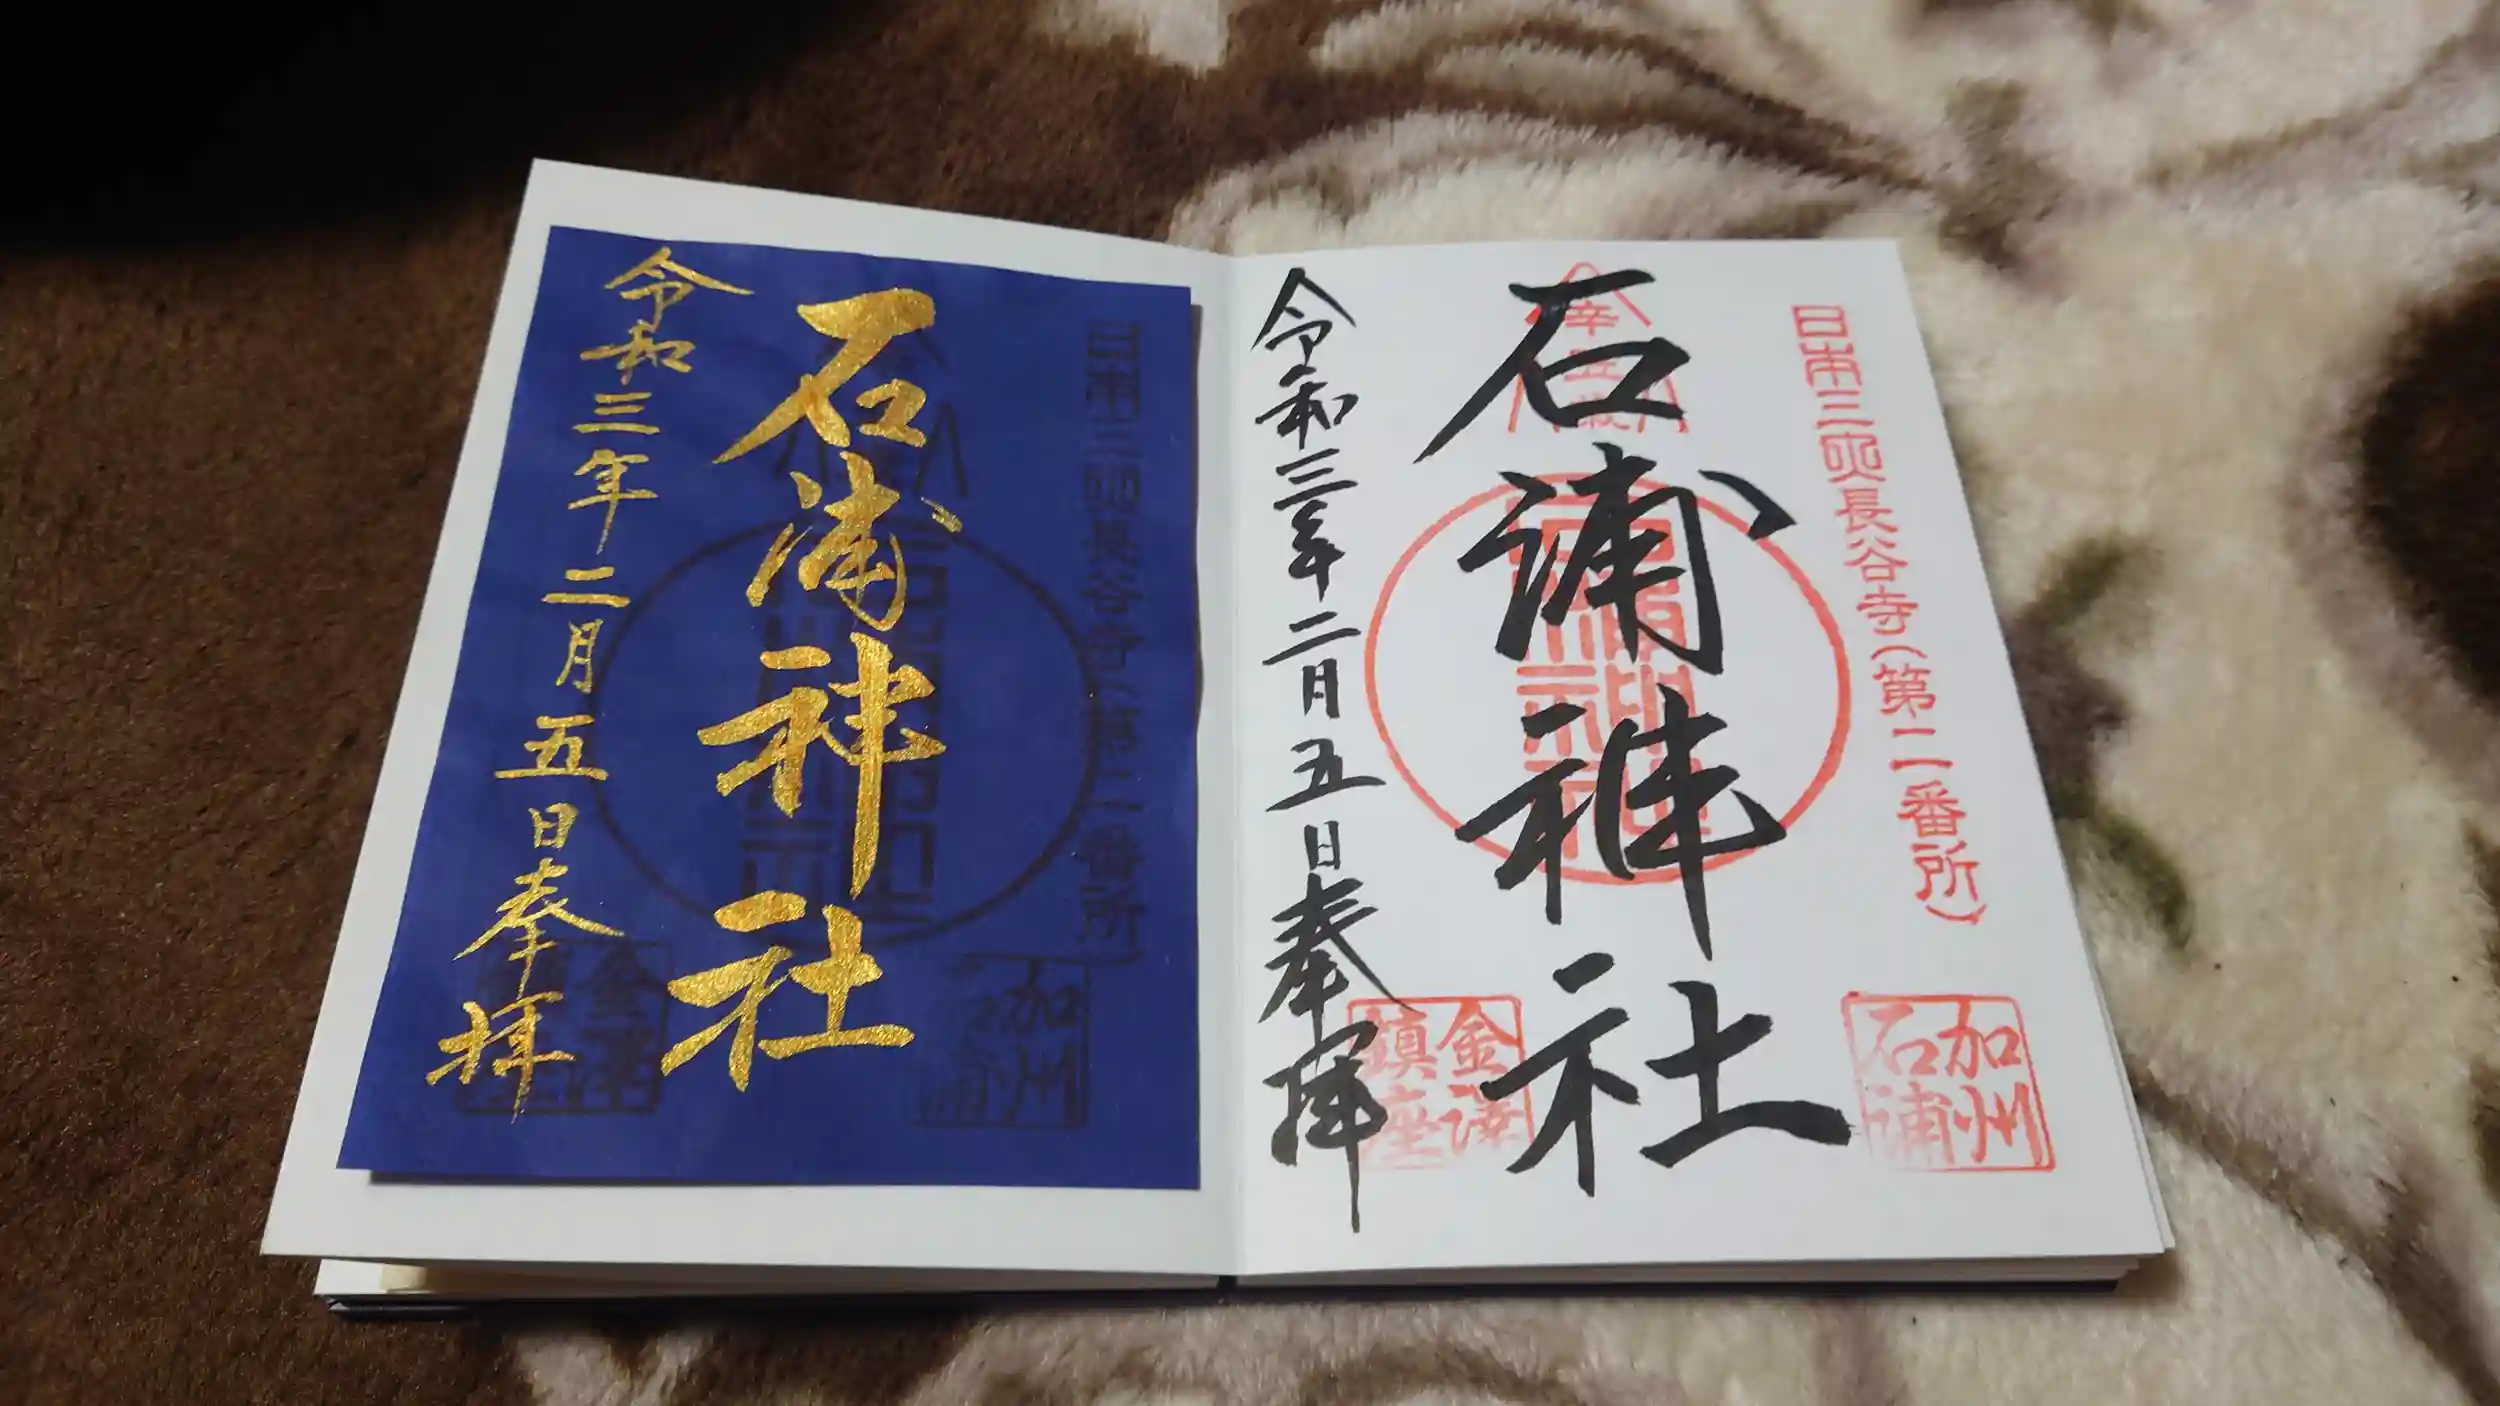 日本三興長谷寺(第二番所)
石浦神社
加州石浦
金澤鎮座
令和三年二月五日奉拝
日本三興長谷寺(第二番所)
石浦神社
加州石浦
金澤
令和三年二月五日奉拝